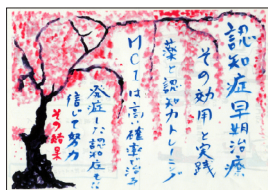 認知症早期治療
その効用と実践
薬と認知力トレーニング
MCIは高確率で治る
発症した認知症も
信じて努力
その結果